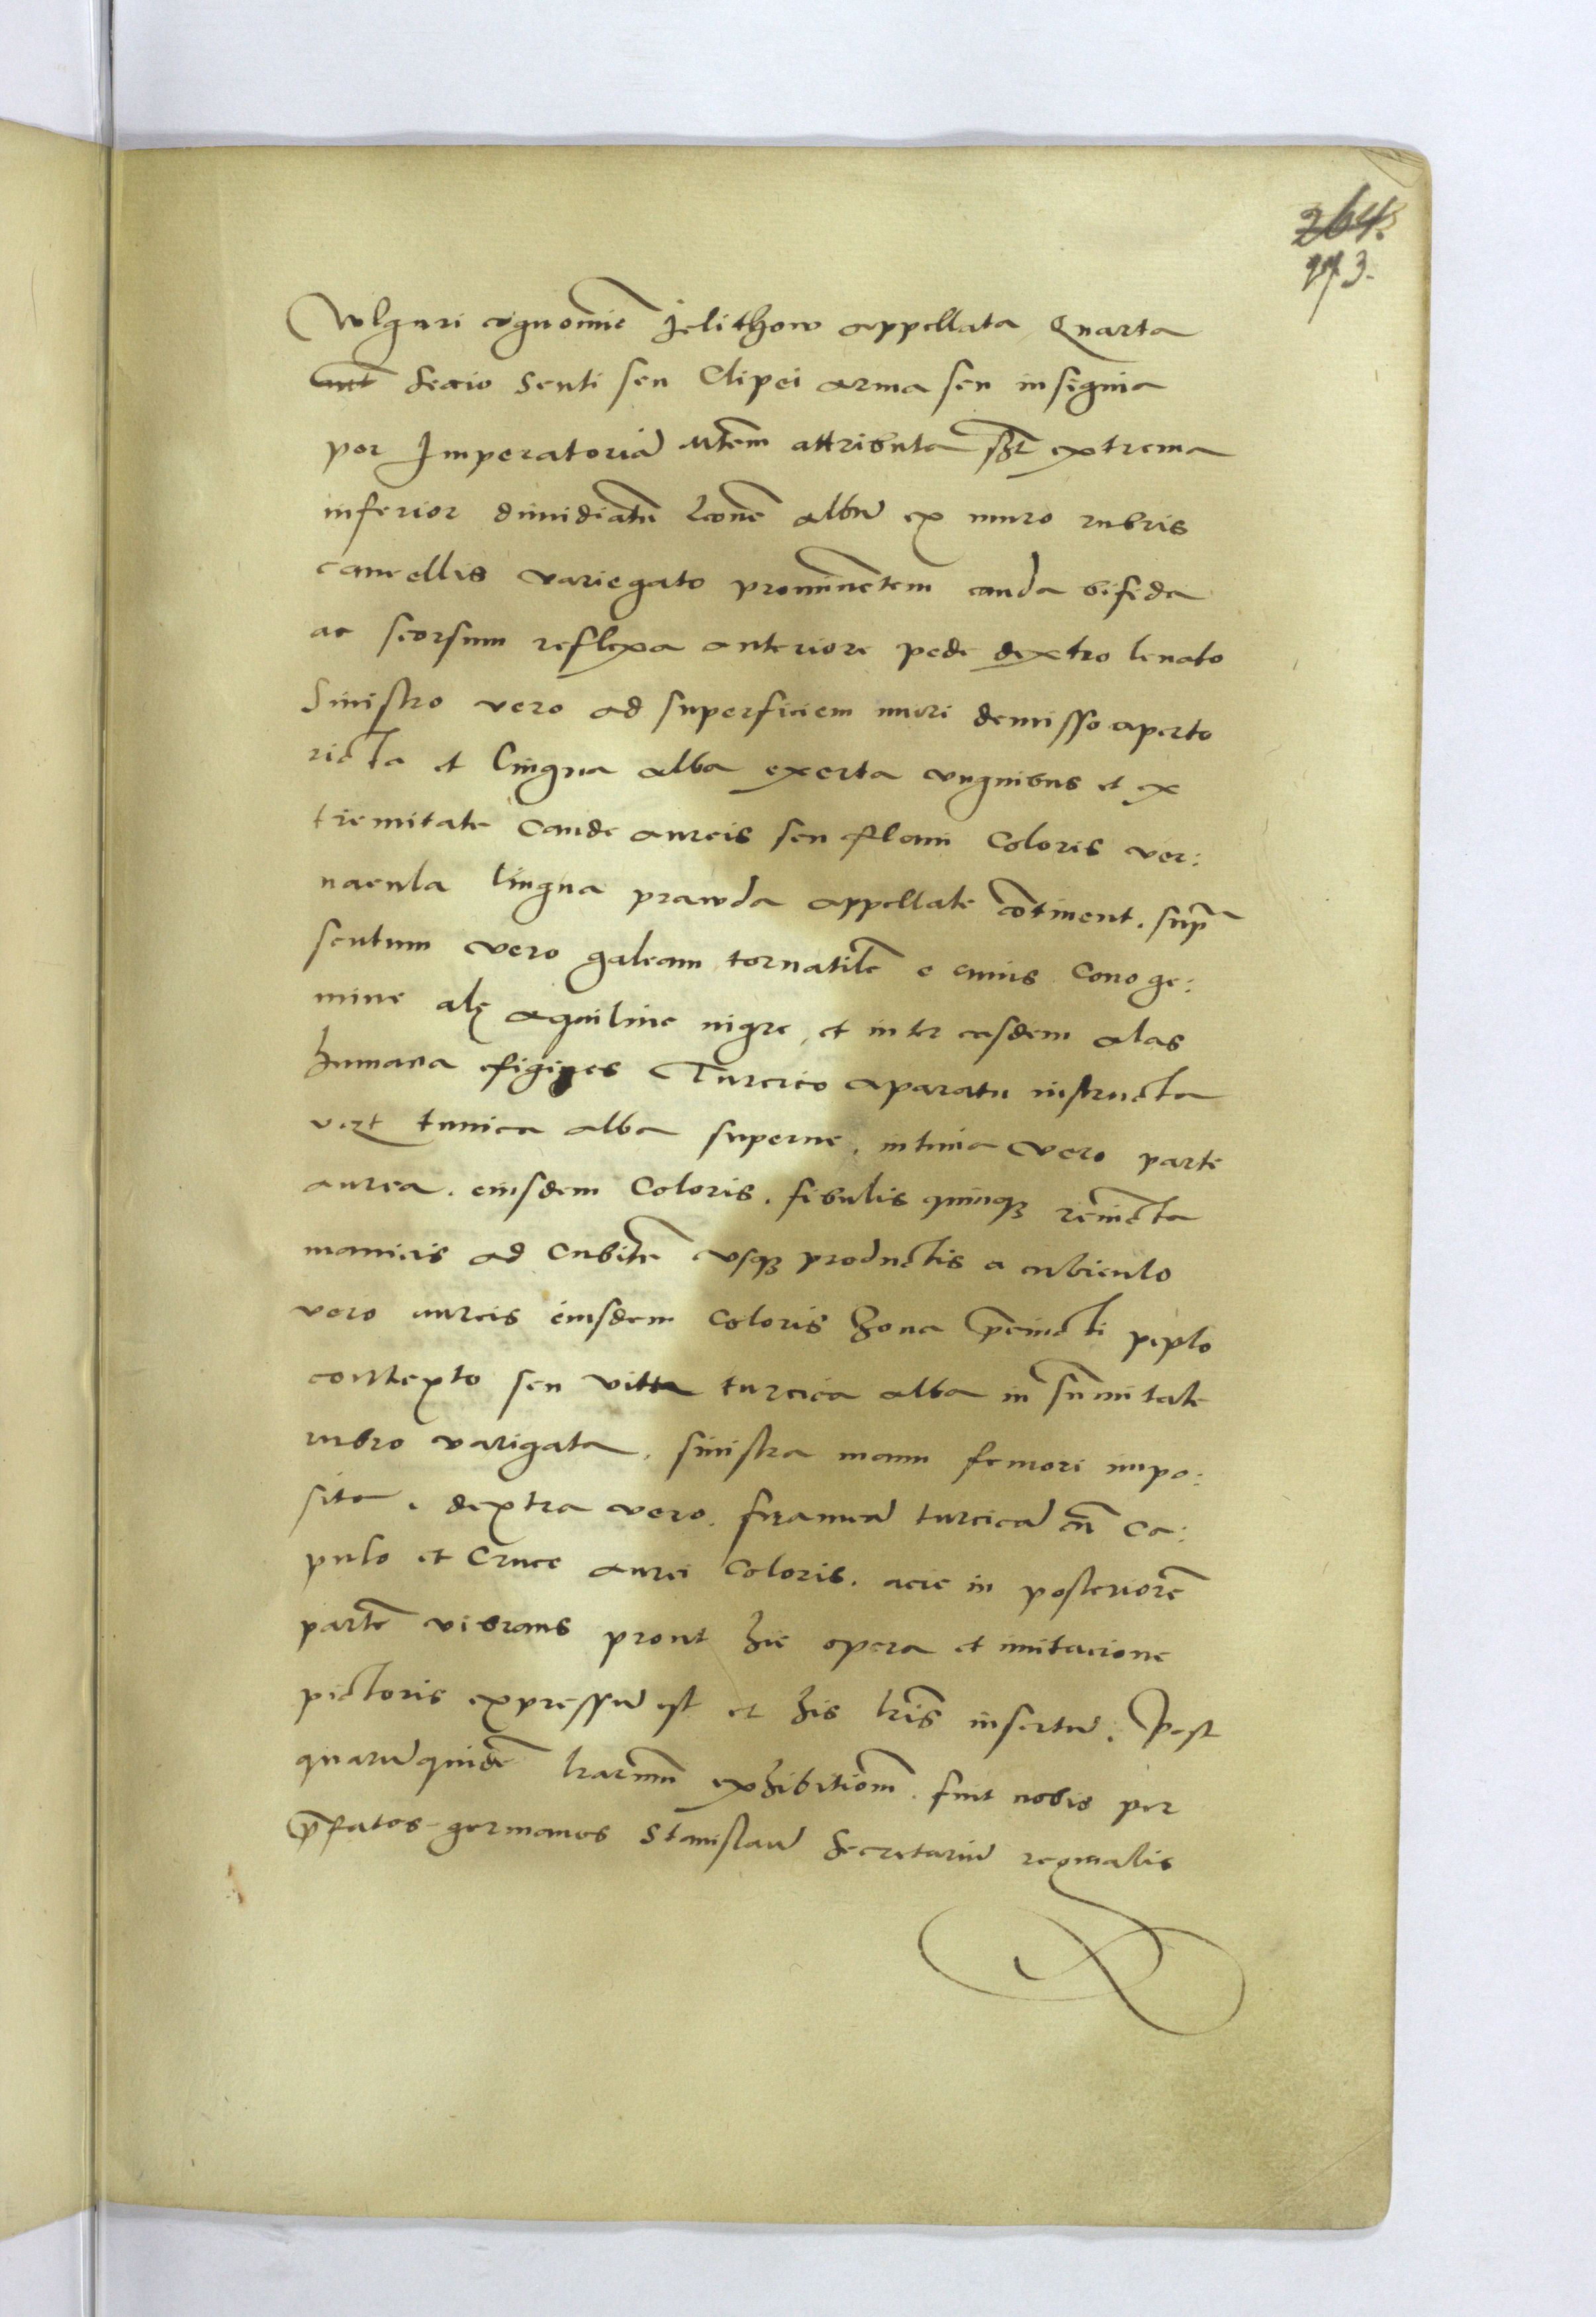 264.
273.
Vulgari cognomie Jelithow appellata Quarta
aut sectio Scuti seu Clipei arma seu insignia
per Imperatoriā Mtem attributa sꝫt extrema
inferior dimidiatū Leonē albū ex muro rubris
cancellis variegato prominētem cauda bifida
ac seorsum reflexa anteriore pede dextro leuato
Sinistro vero ad superficiem muri demisso aperto
rictu et Lingua alba exerta vnguibus et ex
tremitate Caude aureis seu flaui Coloris ver:
nacula lingua prawda appellate cōtinent. supra
scutum vero galeam tornatilē e cuius Cono ge:
mine alę aquiline nigre, et inter easdem alas
humana efigies Turcico aparatu instructa
vezt tunica alba superne. intima vero parte
aurea. eiusdem Coloris. fibulis quinqꝫ reuīcta
manicis ad Cubitū vsqꝫ productis a cubiculo
vero aureis eiusdem Coloris Zona p̄cincti peplo
contexto seu vitta turcica alba in sūmitate
rubro varigata, sinistra manu femori impo:
sita. dextra vero. frameā turcicā cū Ca:
pulo et Cruce aurei Coloris. acie in posteriorē
partē vibrans prout hic opera et imitacione
pictoris expressū est et his lris insertū. Post
quarū quidē lrarum exhibitionem. fuit nobis per
p̄fatos germanos Stanislaū Secretariū reginalis